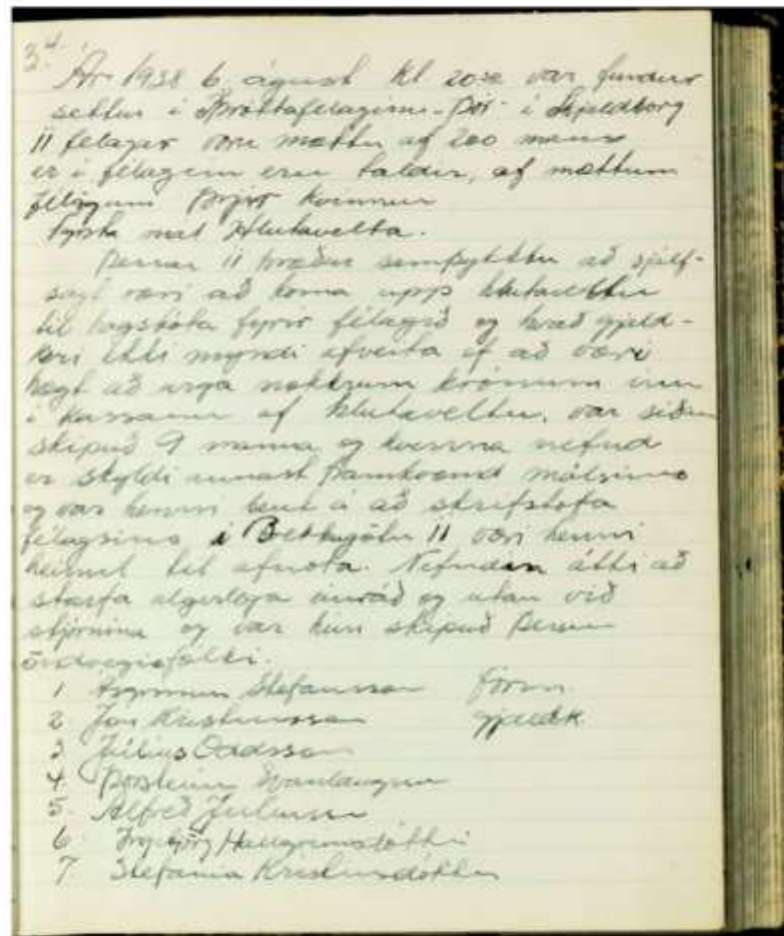 34.
Ár 1938 6. ágúst kl 2030 var fundur
settur í Íþróttafélaginu - Þór - í Skjaldborg
11 félagar voru mættir af 200 manns
er í félaginu eru taldir, af mættum
félögum Þrjár konur
Fyrsta mál Hlutavelta.
Þessir 11 hræður samþykktu að sjálf-
sagt væri að koma upp hlutaveltu
til hagsbóta fyrir félagið og kvað gjald-
keri ekki myndi afveita ef að væri
hægt að urga nokkrum krónum inn
í kassann af hlutaveltu, var síðan
skipuð 9 manna og kvenna nefnd
er skyldi annast framkvæmd málsins
og var henni bent á að skrifstofa
félagsins í 11 væri henni
heimil til afnota. Nefndin átti að
starfa algerlega og utan við
stjórnina og var hún skipuð þessu
öndvegisfólki.
1 Stefánsson form
2 Jón Kristinsson gjaldk
3 Júlíus Oddsson
4 Þorsteinn Svanlaugsson
5. Alfreð
6 Ingibjörg Hallgrímsdóttir
7. Stefanía Kristinsdóttir